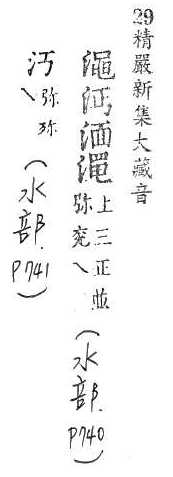 29精嚴新集大藏音
澠沔湎 上三正並 弥兖乀 (水部.P740)
汅 乀弥 (水部.P741)